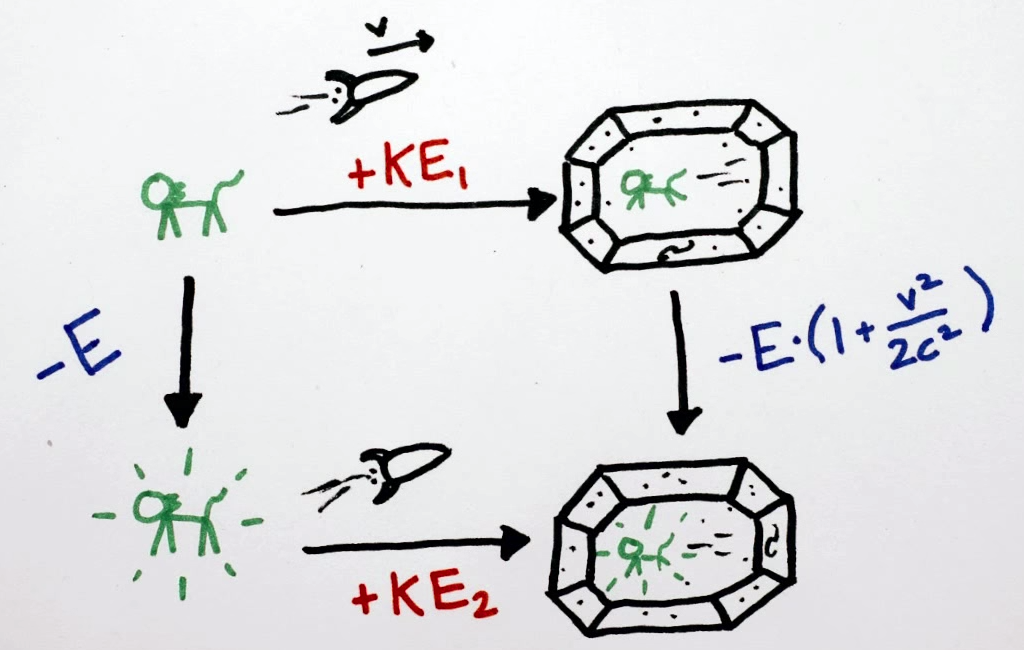 v
+KE₁
-E
-E·(1+v²/2c²)
+KE₂